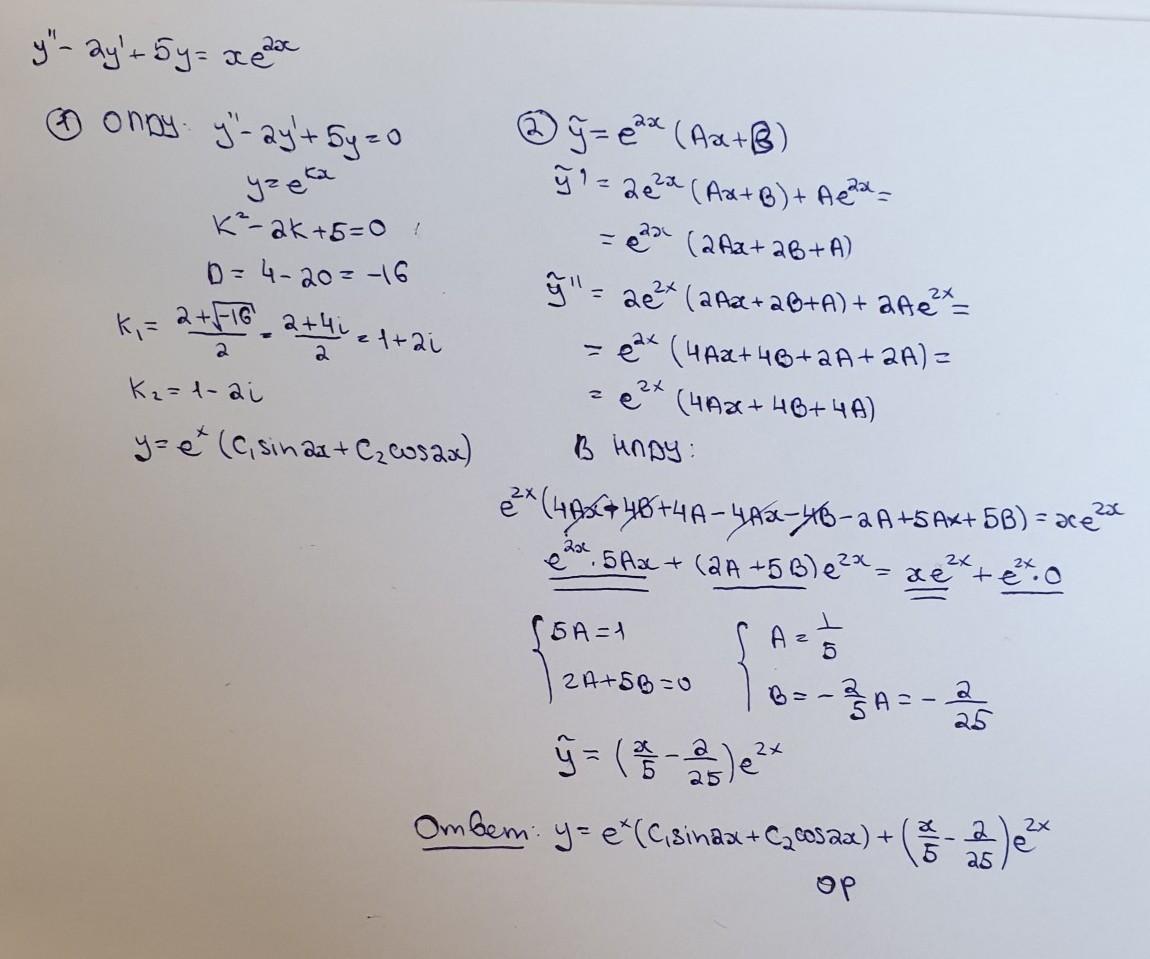 y'' - 2y' + 5y = xe^{2x}
① ОЛДУ: y'' - 2y' + 5y = 0
y = e^{kx}
k² - 2k + 5 = 0
D = 4 - 20 = -16
k₁ = (2+√-16)/2 = (2+4i)/2 = 1+2i
k₂ = 1 - 2i
y = e^x (C₁sin2x + C₂cos2x)
② ỹ = e^{2x} (Ax+B)
ỹ' = 2e^{2x} (Ax+B) + Ae^{2x} =
= e^{2x} (2Ax+2B+A)
ỹ'' = 2e^{2x} (2Ax+2B+A) + 2Ae^{2x} =
= e^{2x} (4Ax+4B+2A+2A) =
= e^{2x} (4Ax+4B+4A)
В НЛДУ:
e^{2x} (4Ax+4B+4A-4Ax-4B-2A+5Ax+5B) = xe^{2x}
e^{2x}·5Ax + (2A+5B)e^{2x} = xe^{2x} + e^{2x}·0
{ 5A=1 { A = 1/5
2A+5B=0 B = -2/5 A = -2/25
ỹ = (x/5 - 2/25)e^{2x}
Ответ: y = e^x (C₁sin2x + C₂cos2x) + (x/5 - 2/25)e^{2x}
ОР